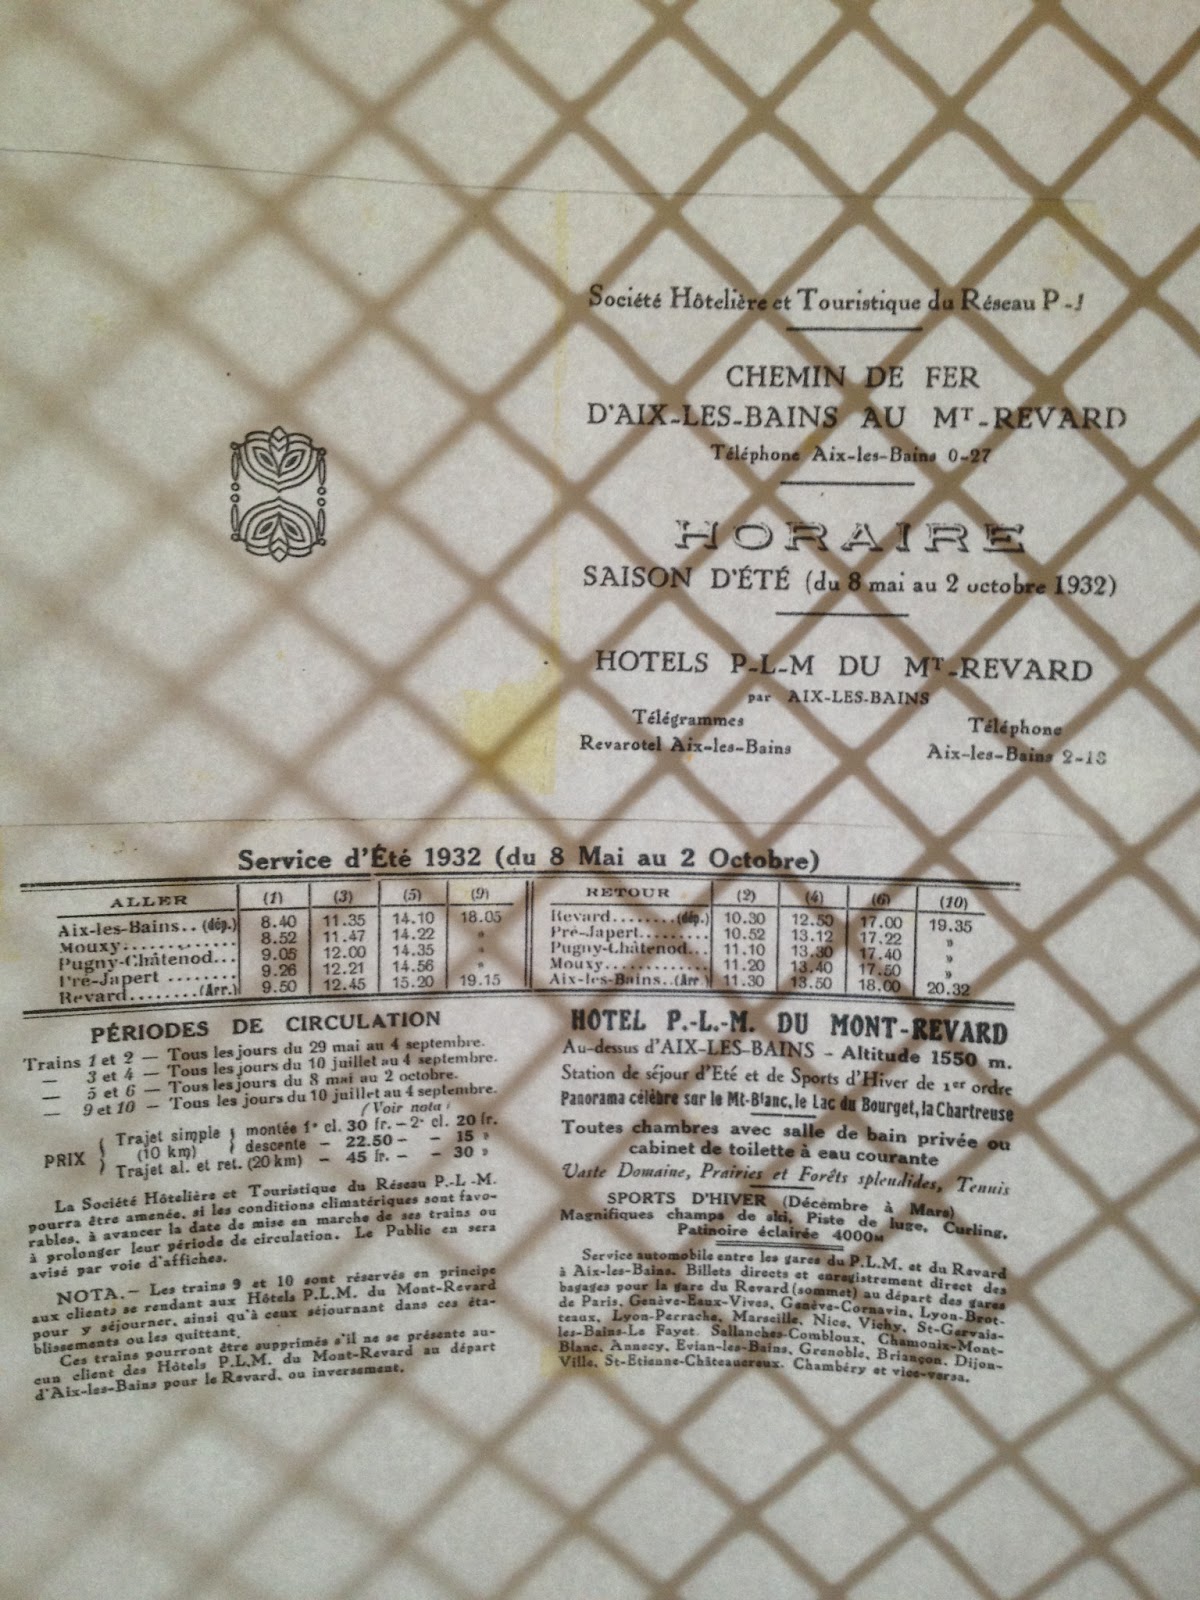 Société Hôtelière et Touristique du Réseau P-
CHEMIN DE FER
D'AIX-LES-BAINS AU Mᵀ-REVARD
Téléphone Aix-les-Bains 0-27
HORAIRE
SAISON D'ÉTÉ (du 8 mai au 2 octobre 1932)
HOTELS P-L-M DU Mᵀ-REVARD
par AIX-LES-BAINS
Télégrammes Téléphone
Revarotel Aix-les-Bains Aix-les-Bains 2-18
Service d'Été 1932 (du 8 Mai au 2 Octobre)
ALLER (1) (3) (5) (9)
Aix-les-Bains.. (dép.) 8.40 11.35 14.10 18.05
Mouxy............. 8.52 11.47 14.22 »
Pugny-Châtenod... 9.05 12.00 14.35 »
Pré-Japert ........ 9.26 12.21 14.56 »
Revard........(Arr.) 9.50 12.45 15.20 19.15
RETOUR (2) (4) (6) (10)
Revard........(dép.) 10.30 12.50 17.00 19.35
Pré-Japert......... 10.52 13.12 17.22 »
Pugny-Châtenod... 11.10 13.30 17.40 »
Mouxy............ 11.20 13.40 17.50 »
Aix-les-Bains..(Arr.) 11.30 13.50 18.00 20.32
PÉRIODES DE CIRCULATION
Trains 1 et 2 — Tous les jours du 29 mai au 4 septembre.
— 3 et 4 — Tous les jours du 10 juillet au 4 septembre.
— 5 et 6 — Tous les jours du 8 mai au 2 octobre.
— 9 et 10 — Tous les jours du 10 juillet au 4 septembre.
(Voir nota)
PRIX { Trajet simple } montée 1ᵉ cl. 30 fr. – 2ᵉ cl. 20 fr.
(10 km) } descente – 22.50 – – 15 »
Trajet al. et ret. (20 km) – 45 fr. – – 30 »
La Société Hôtelière et Touristique du Réseau P.-L-M.
pourra être amenée, si les conditions climatériques sont favo-
rables, à avancer la date de mise en marche de ses trains ou
à prolonger leur période de circulation. Le Public en sera
avisé par voie d'affiches.
NOTA.– Les trains 9 et 10 sont réservés en principe
aux clients se rendant aux Hôtels P.L.M. du Mont-Revard
pour y séjourner, ainsi qu'à ceux séjournant dans ces éta-
blissements ou les quittant.
Ces trains pourront être supprimés s'il ne se présente au-
cun client des Hôtels P.L.M. du Mont-Revard au départ
d'Aix-les-Bains pour le Revard, ou inversement.
HOTEL P.-L.-M. DU MONT-REVARD
Au-dessus d'AIX-LES-BAINS - Altitude 1550 m.
Station de séjour d'Eté et de Sports d'Hiver de 1ᵉʳ ordre
Panorama célèbre sur le Mt-Blanc, le Lac du Bourget, la Chartreuse
Toutes chambres avec salle de bain privée ou
cabinet de toilette à eau courante
Vaste Domaine, Prairies et Forêts splendides, Tennis
SPORTS D'HIVER (Décembre à Mars)
Magnifiques champs de ski, Piste de luge, Curling,
Patinoire éclairée 4000ᴹ
Service automobile entre les gares du P.L.M. et du Revard
à Aix-les-Bains. Billets directs et enregistrement direct des
bagages pour la gare du Revard (sommet) au départ des gares
de Paris, Genève-Eaux-Vives, Genève-Cornavin, Lyon-Brot-
teaux, Lyon-Perrache, Marseille, Nice, Vichy, St-Gervais-
les-Bains-Le Fayet, Sallanches-Combloux, Chamonix-Mont-
Blanc, Annecy, Evian-les-Bains, Grenoble, Briançon, Dijon-
Ville, St-Etienne-Châteaucreux, Chambéry et vice-versa.